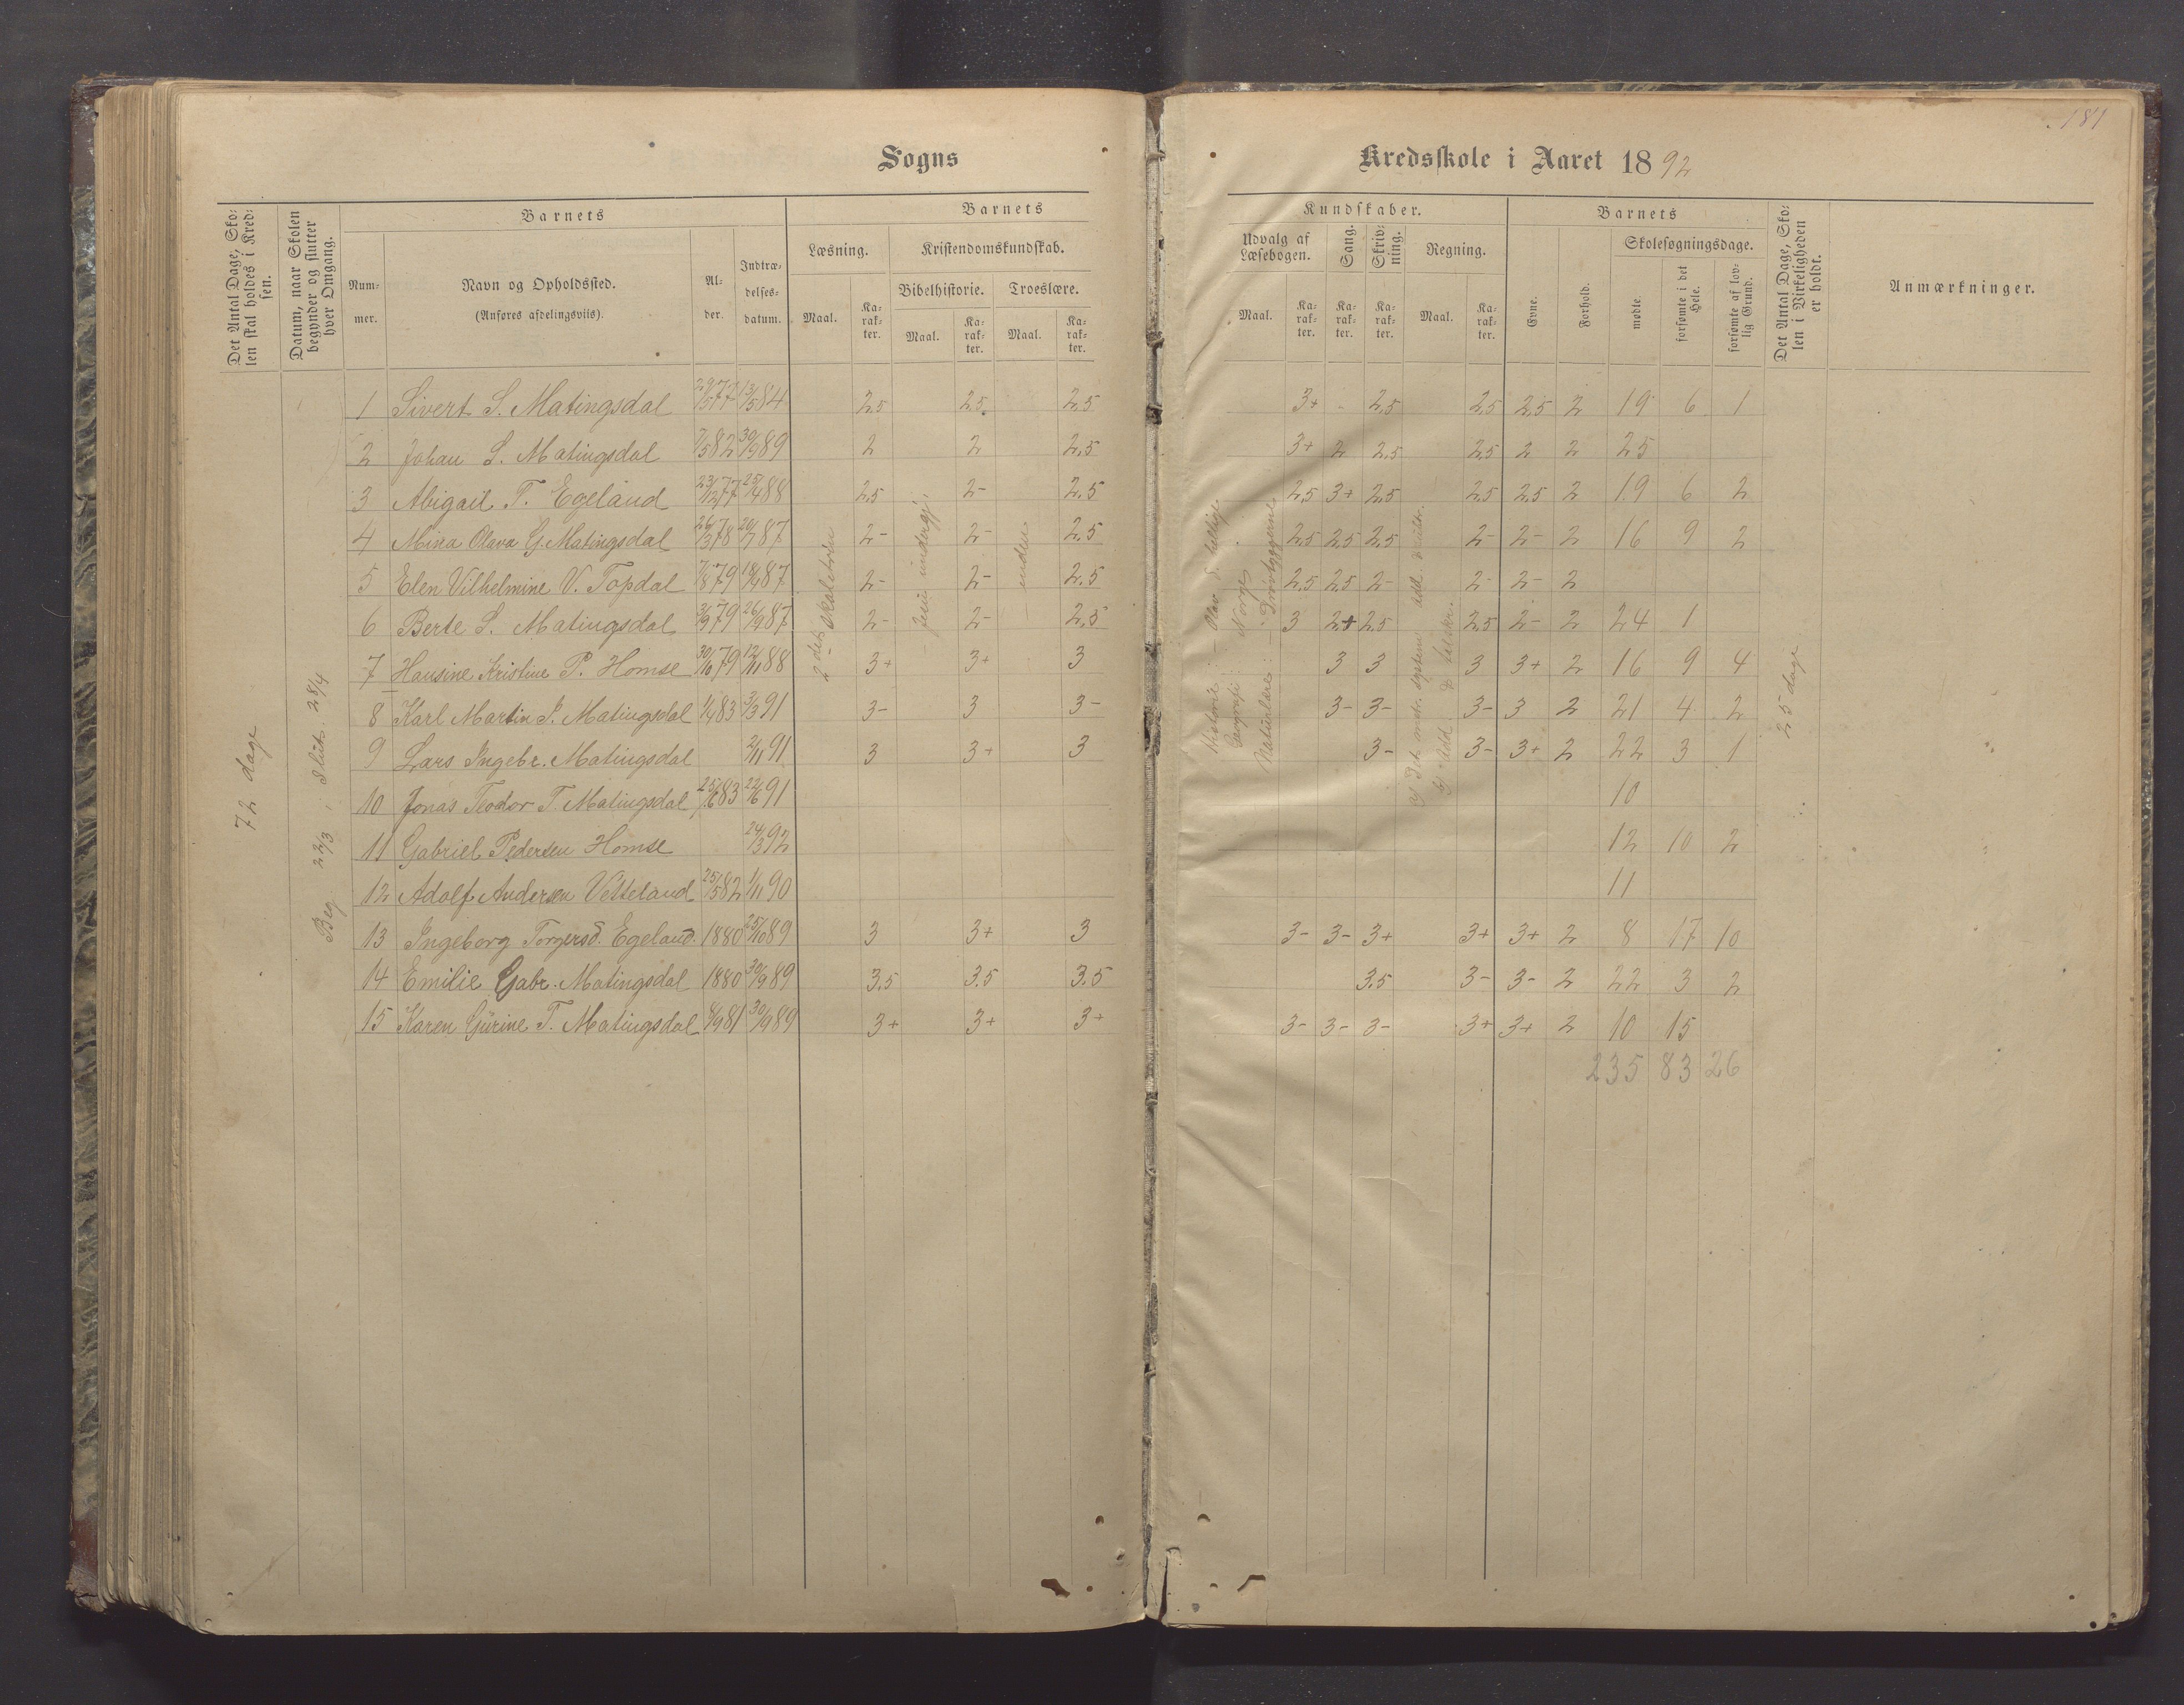 181
Sogns
Kredsskole i Aaret 1892
Det Antal Dage, Sko-
len skal holdes i Kred-
sen.
Datum, naar Skolen
begynder og slutter
hver Omgang.
Barnets
Num-
mer.
Navn og Opholdssted.
(Anføres afdelingsviis).
Al-
der.
Indtræ-
delses-
datum.
Barnets
Læsning.
Maal.
Ka-
rak-
ter.
Kristendomskundskab.
Bibelhistorie.
Maal.
Ka-
rak-
ter.
Troeslære.
Maal.
Ka-
rak-
ter.
Kundskaber.
Udvalg af
Læsebogen.
Maal.
Ka-
rak-
ter.
Sang.
Ka-
rak-
ter.
Skriv-
ning.
Ka-
rak-
ter.
Regning.
Maal.
Ka-
rak-
ter.
Barnets
Evne.
Forhold.
Skolesøgningsdage.
mødte.
forsømte i det
Hele.
forsømte af lov-
lig Grund.
Det Antal Dage, Sko-
len i Virkeligheden
er holdt.
Anmærkninger.
72 dage
Beg. 22/3, Slut. 28/4
2det skoletrin
Historie: Olav d. hellige
Geografi: Norge
Naturlære:
25 dage
1 Sivert S. Matingsdal 29/5 77 13/5 84 2,5 2,5 2,5 3+ 2,5 2,5 2,5 2 19 6 1
2 Johan S. Matingsdal 7/5 82 30/9 89 2 2 2,5 3+ 2 2,5 2,5 2 2 25
3 Abigail T. Egeland 23/12 77 25/4 88 2,5 2- 2,5 2,5 3+ 2,5 2,5 2,5 2 19 6 2
4 Mina Olava G. Matingsdal 26/3 78 20/7 87 2- 2- 2,5 2,5 2,5 2,5 2- 2- 2 16 9 2
5 Elen Vilhelmine V. Topdal 7/8 79 18/4 87 2- 2- 2,5 2,5 2,5 2- 2- 2- 2
6 Berte S. Matingsdal 3/9 79 26/9 87 2- 2- 2,5 3 2+ 2,5 2,5 2- 2 24 1
7 Hansine Kristine P. Homse 30/10 79 12/11 88 3+ 3+ 3 3 3 3 3+ 2 16 9 4
8 Karl Martin J. Matingsdal 1/4 83 3/3 91 3- 3 3- 3- 3- 3- 3 2 21 4 2
9 Lars Ingebr. Matingsdal 2/11 91 3 3+ 3 3- 3- 3+ 2 22 3 1
10 Jonas Teodor T. Matingsdal 25/6 83 22/6 91 10
11 Gabriel Pedersen Homse 24/3 92 12 10 2
12 Adolf Andersen Vetteland 25/5 82 1/11 90 11
13 Ingeborg Torgersd. Egeland. 1880 25/10 89 3 3+ 3 3- 3- 3+ 3+ 3+ 2 8 17 10
14 Emilie Gabr. Matingsdal 1880 30/9 89 3,5 3,5 3,5 3,5 3- 3- 2 22 3 2
15 Karen Gurine T. Matingsdal 8/9 81 30/9 89 3+ 3+ 3+ 3- 3- 3- 3+ 3+ 2 10 15
235 83 26